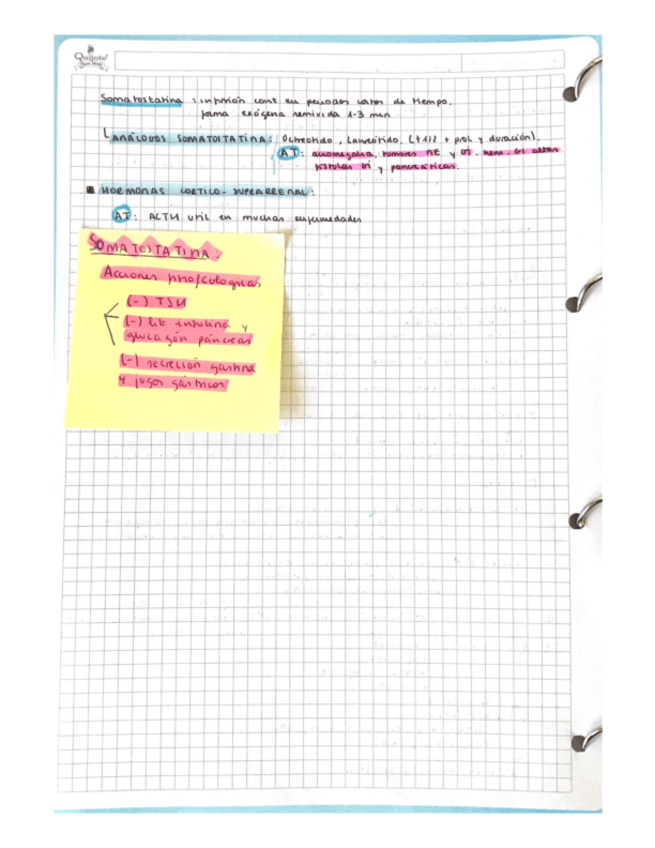 Quijote
Somatostatina : infusión cont en periodos cortos de tiempo.
forma exógena semivida 1-3 min
ANÁLOGOS SOMATOSTATINA: Octreotido, Lanreótido. (t 1/2 + prol y duración).
AT: acromegalia, tumores NE y GI, hem. GI altas
fístulas GI y pancreáticas.
HORMONAS CORTICO-SUPRARRENAL:
AT: ACTH util en muchas enfermedades
SOMATOSTATINA:
Acciones
(-) TSH
(-) lib insulina y
glucagón páncreas
(-) secreción gastrina
y jugos gástricos